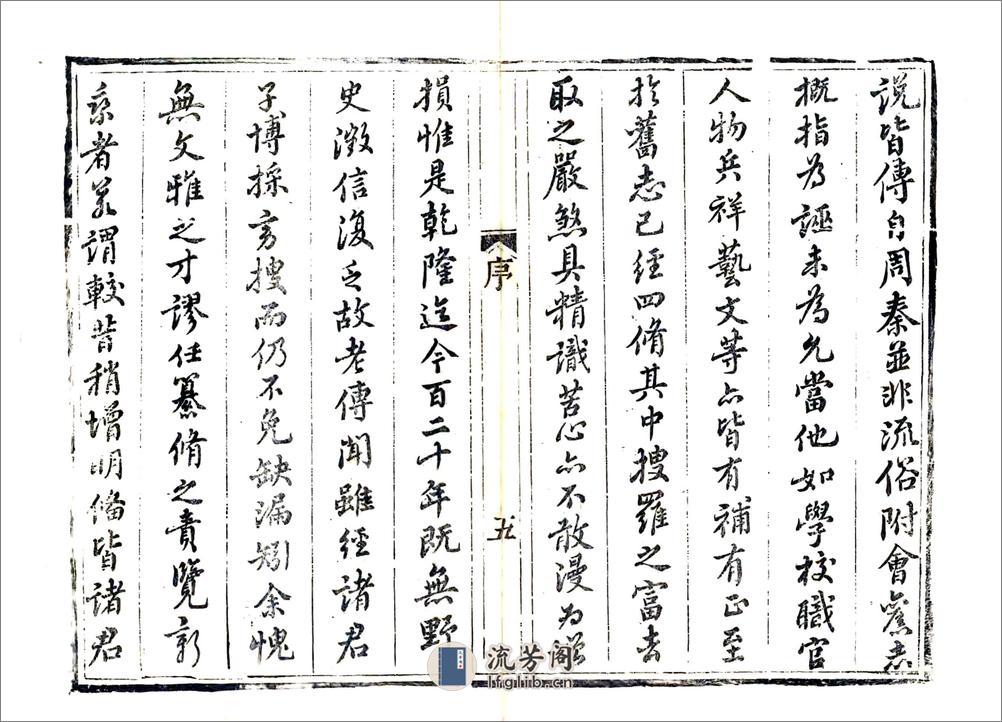 説皆傳自周秦並非流俗附會舊志
概指為誣未為允當他如學校職官
人物兵祥藝文等亦皆有補有正至
於舊志已經四脩其中搜羅之富去
取之嚴煞具精識苦心亦不敢漫為
序
五
損惟是乾隆迄今百二十年既無野
史徵信復乏故老傳聞雖經諸君
子博採旁搜而仍不免缺漏矧余愧
無文雅之才謬任纂脩之責覽新
者若謂較昔稍增明備皆諸君
流芳阁
lfglib.cn